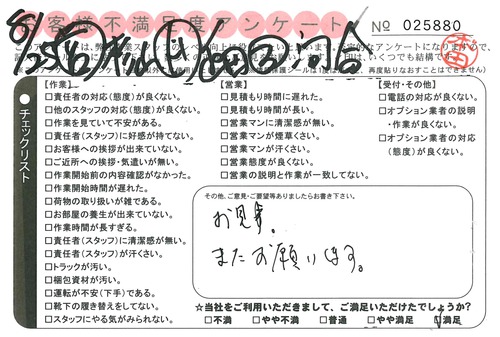 お客様不満足度アンケート
№ 025880
チェックリスト
【作業】
□責任者の対応(態度)が良くない。
□他のスタッフの対応(態度)が良くない。
□作業を見ていて不安がある。
□責任者(スタッフ)に好感が持てない。
□お客様への挨拶が出来ていない。
□ご近所への挨拶・気遣いが無い。
□作業開始前の内容確認がなかった。
□作業開始時間が遅れた。
□荷物の取り扱いが雑である。
□お部屋の養生が出来ていない。
□作業時間が長すぎる。
□責任者(スタッフ)に清潔感が無い。
□責任者(スタッフ)が汗くさい。
□トラックが汚い。
□梱包資材が汚い。
□運転が不安(下手)である。
□靴下の履き替えをしてない。
□スタッフにやる気がみられない。
【営業】
□見積もり時間に遅れた。
□見積もり時間が長い。
□営業マンに清潔感が無い。
□営業マンが煙草くさい。
□営業マンが汗くさい。
□営業態度が良くない。
□営業の説明と作業が一致してない。
【受付・その他】
□電話の対応が良くない。
□オプション業者の説明
・作業が良くない。
□オプション業者の対応
(態度)が良くない。
その他、ご意見・ご要望等ありましたらお書き下さい。
お見事。
またお願いします。
☆当社をご利用いただきまして、ご満足いただけたでしょうか?
□不満 □やや不満 □普通 □やや満足 □満足